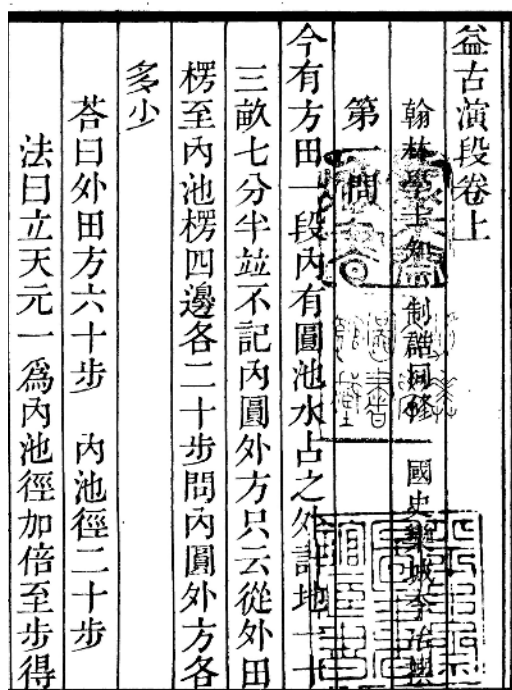 益古演段卷上
翰林學士知 制誥同修 國史欒城李冶撰
第一問
今有方田一段內有圓池水占之外計地一十
三畝七分半並不記內圓外方只云從外田
楞至內池楞四邊各二十步問內圓外方各
多少
荅曰外田方六十步 內池徑二十步
法曰立天元一爲內池徑加倍至步得